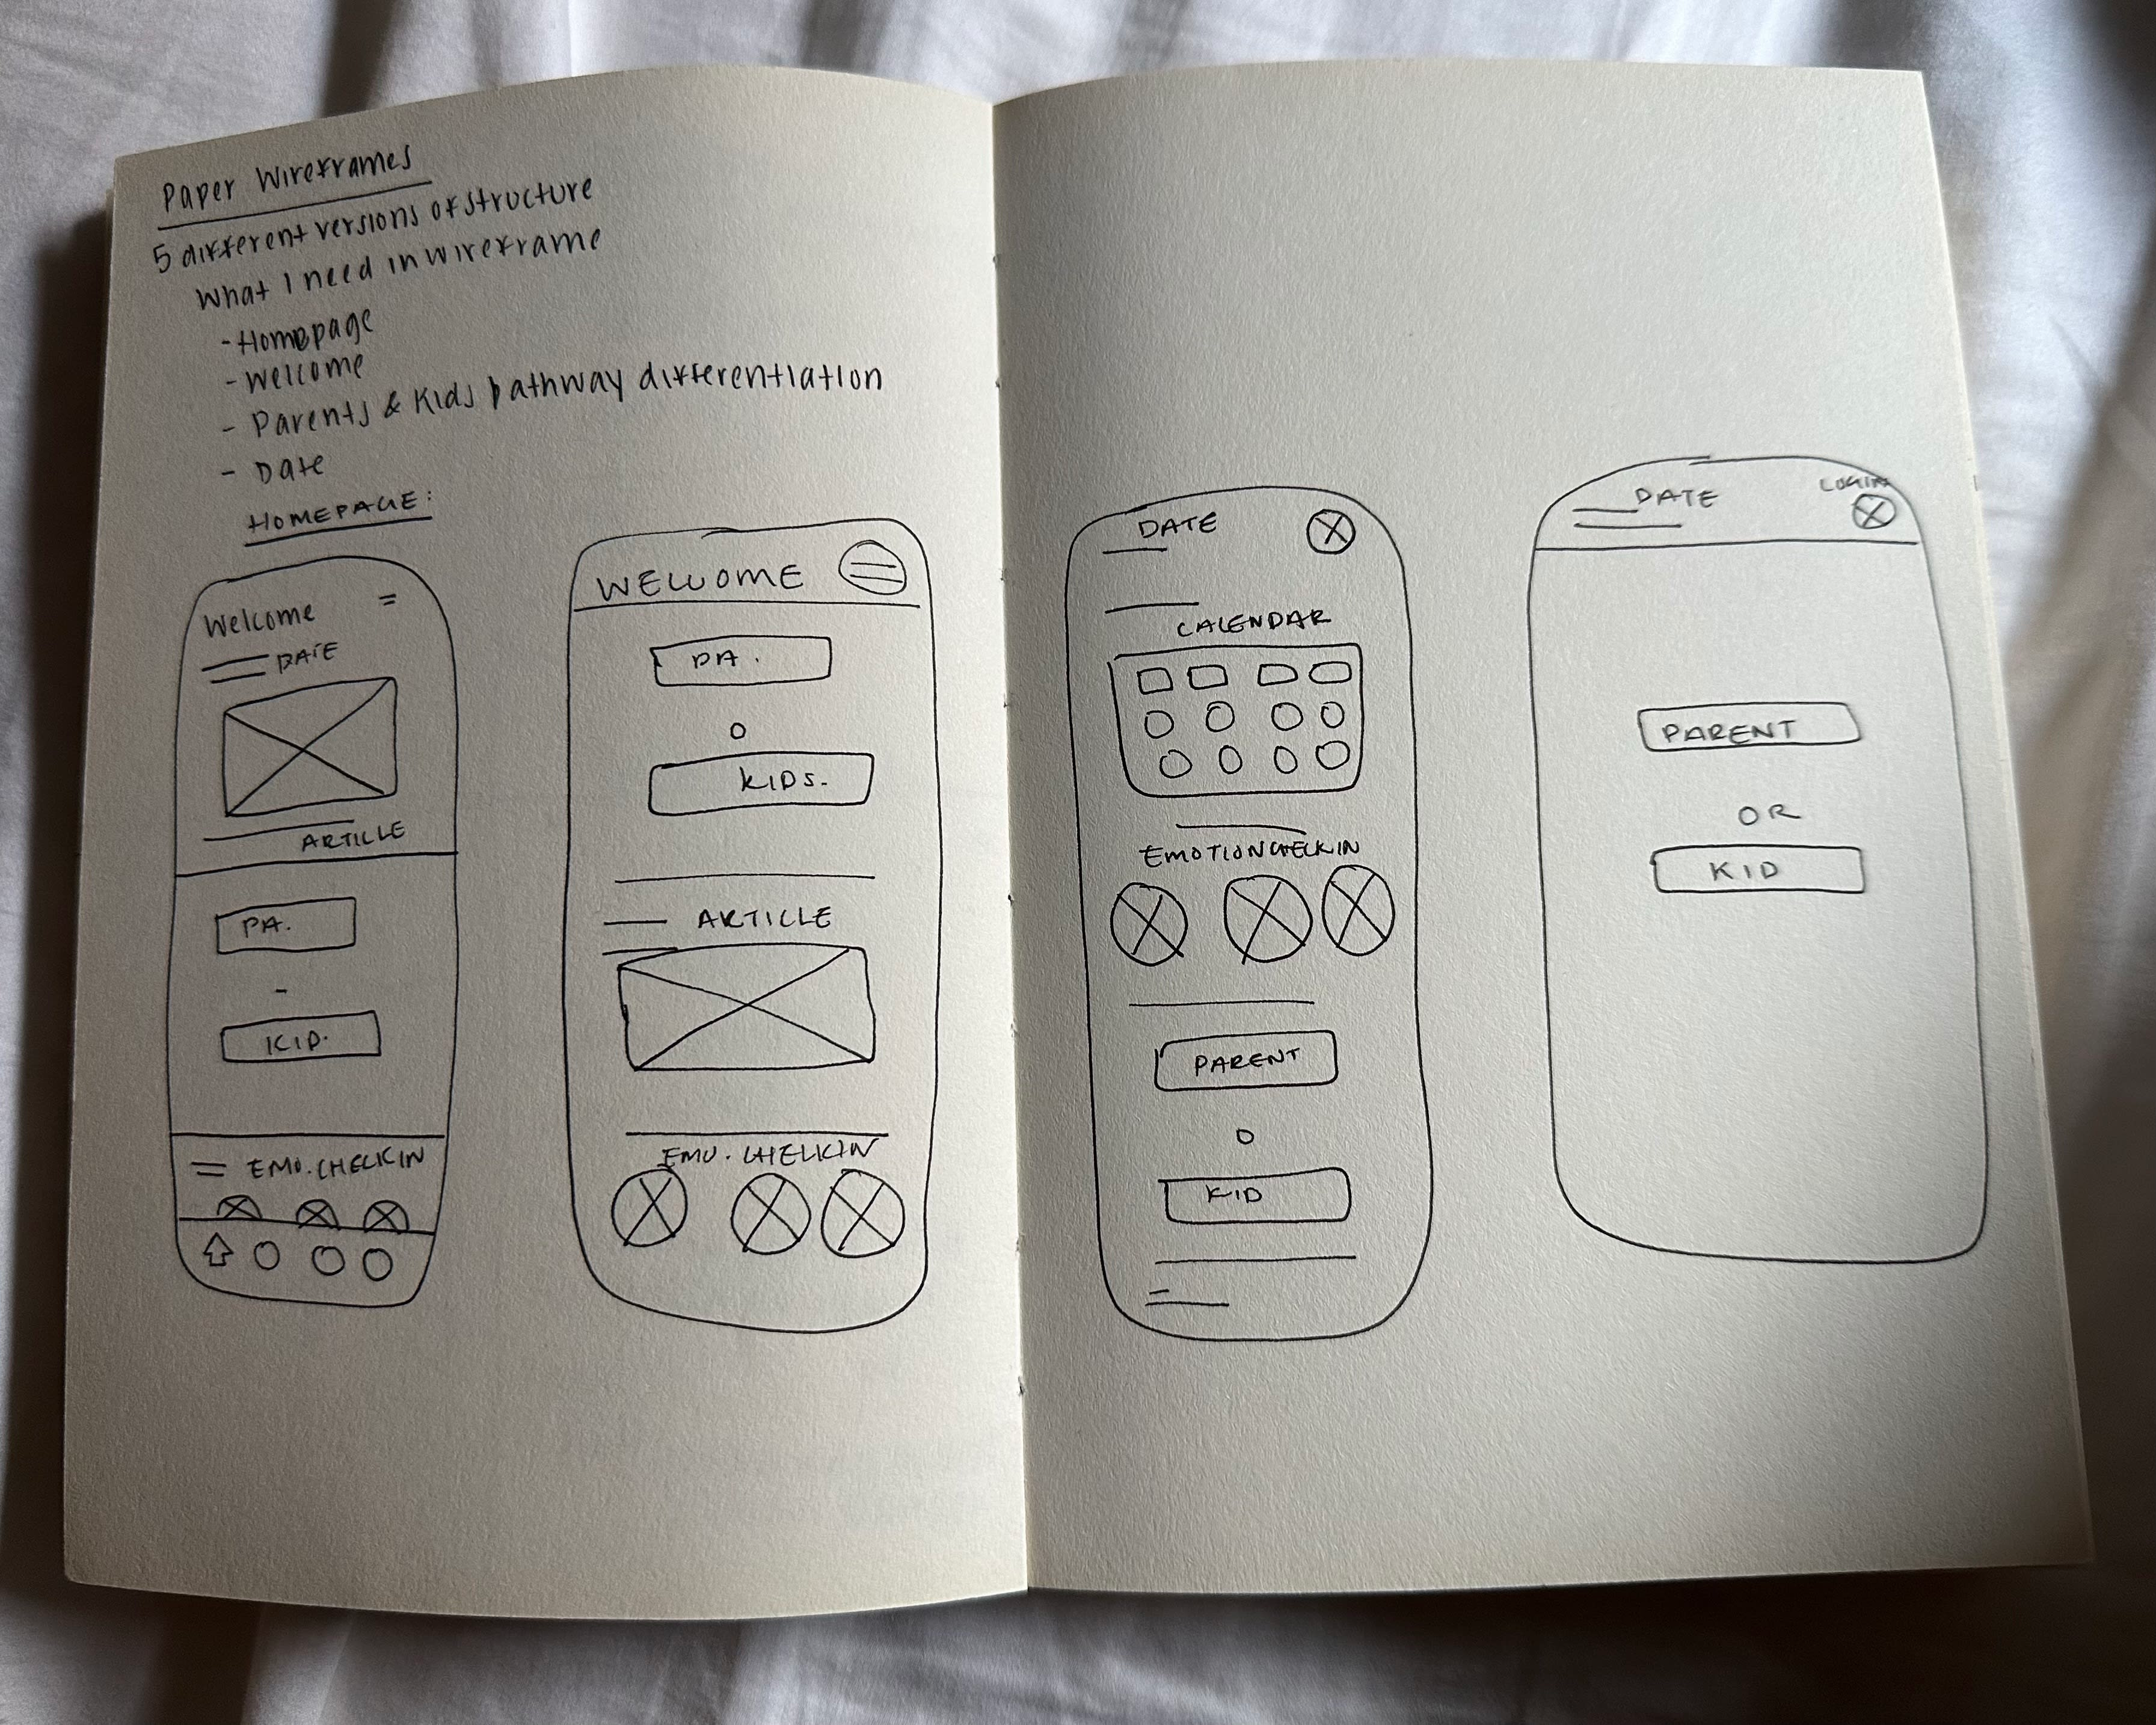 Paper Wireframes
5 different versions of structure
What I need in wireframe
- Homepage
- Welcome
- Parents & Kids pathway differentiation
- Date
HOMEPAGE:
Welcome
DATE
ARTICLE
PA.
KID.
EMO. CHECKIN
WELCOME
PA.
O
KIDS.
ARTICLE
EMO. CHECKIN
DATE
CALENDAR
EMOTION CHECKIN
PARENT
O
KID
DATE
LOGIN
PARENT
OR
KID